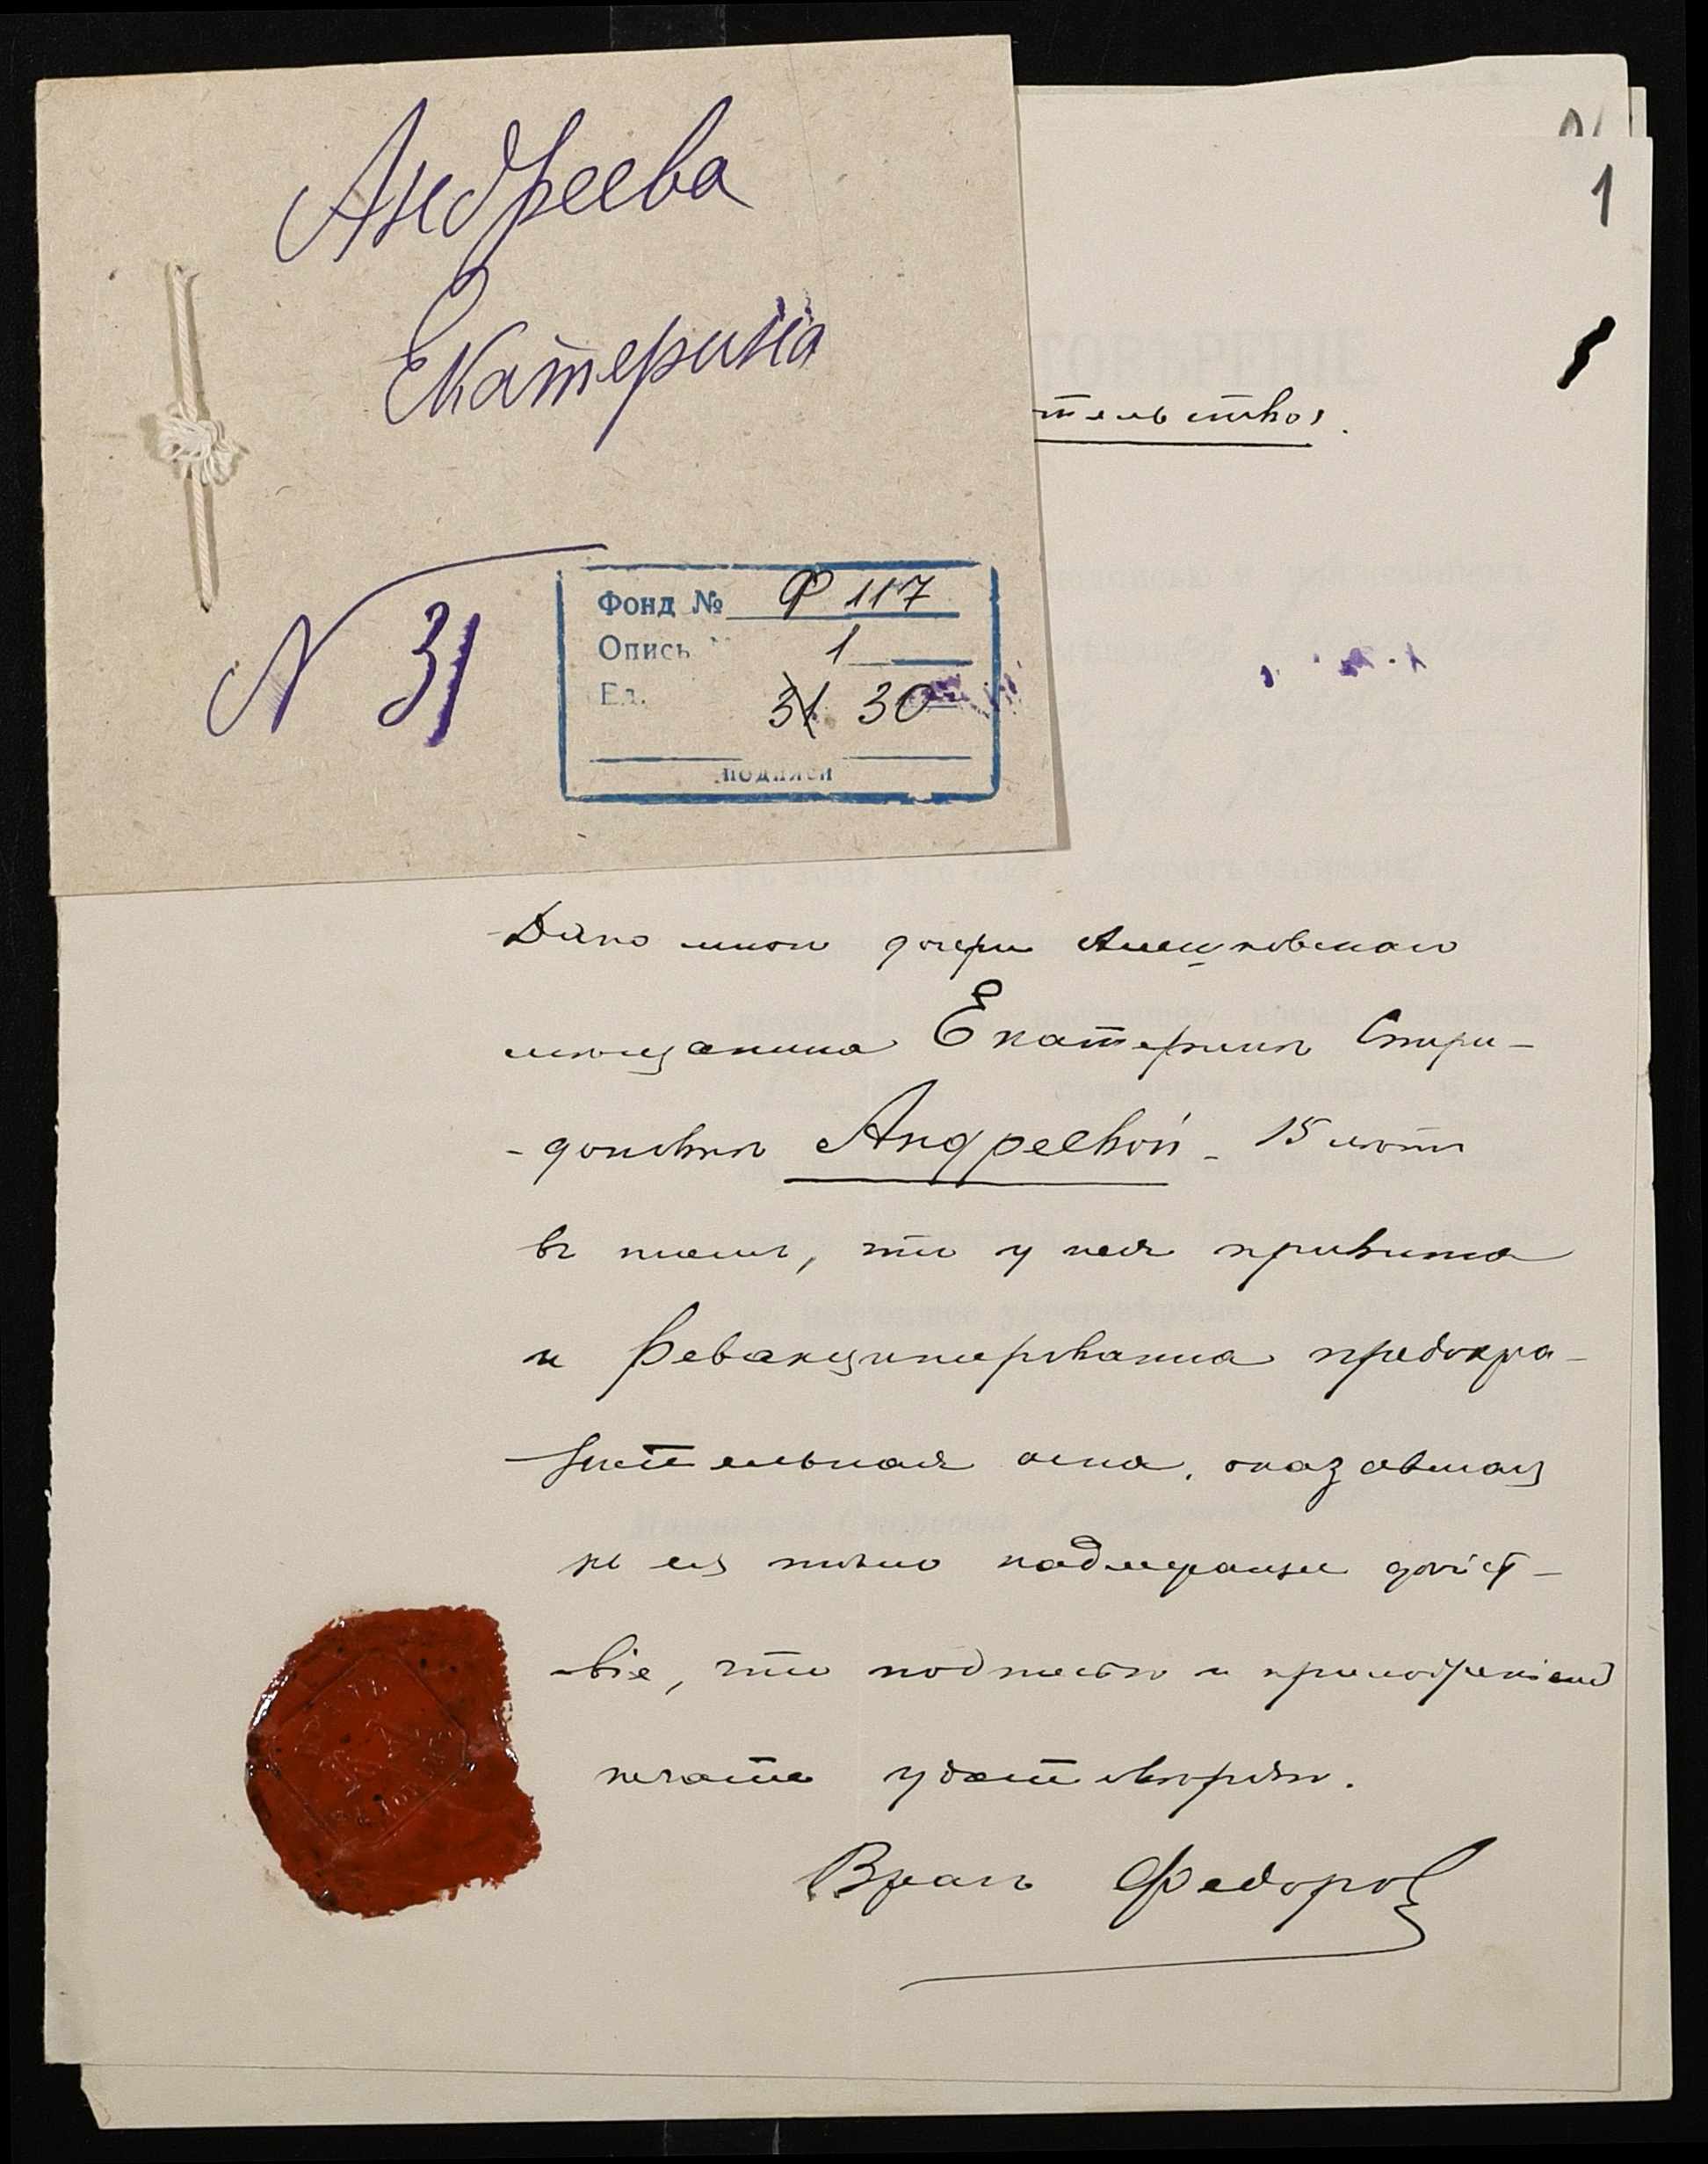 Андреева
Екатерина
N 31
Фонд № Ф 117
Опись 1
Ед. 31 30
подписи
1
тельство.
Дано мною дочери
мѣщанина Екатеринѣ Спири-
-доновнѣ Андреевой - 15 лѣтъ
въ томъ, что у нея привита
и ревакцинирована предохра-
нительная оспа, оказавшая
на ея тѣло надлежащее дѣйст-
-віе, что подписью и приложеніемъ
печати удостовѣряю.
Врачъ Федоров